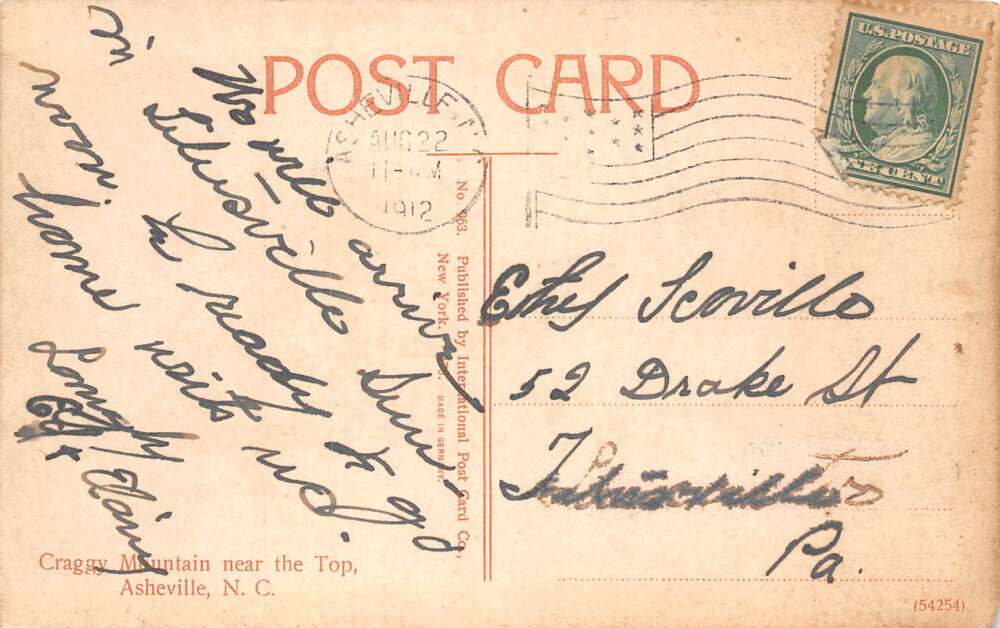 POST CARD
U.S. POSTAGE
ONE CENT
ASHEVILLE, N.C.
AUG 22
11-AM
1912
We will arrive
in Titusville Sun.
noon. be ready to go
home with us.
Lovingly
Craggy Mountain near the Top,
Asheville, N. C.
No. 963. Published by International Post Card Co.,
New York, MADE IN GERMANY.
Ethel Scoville
52 Drake St
Titusville
Pa.
(54254)